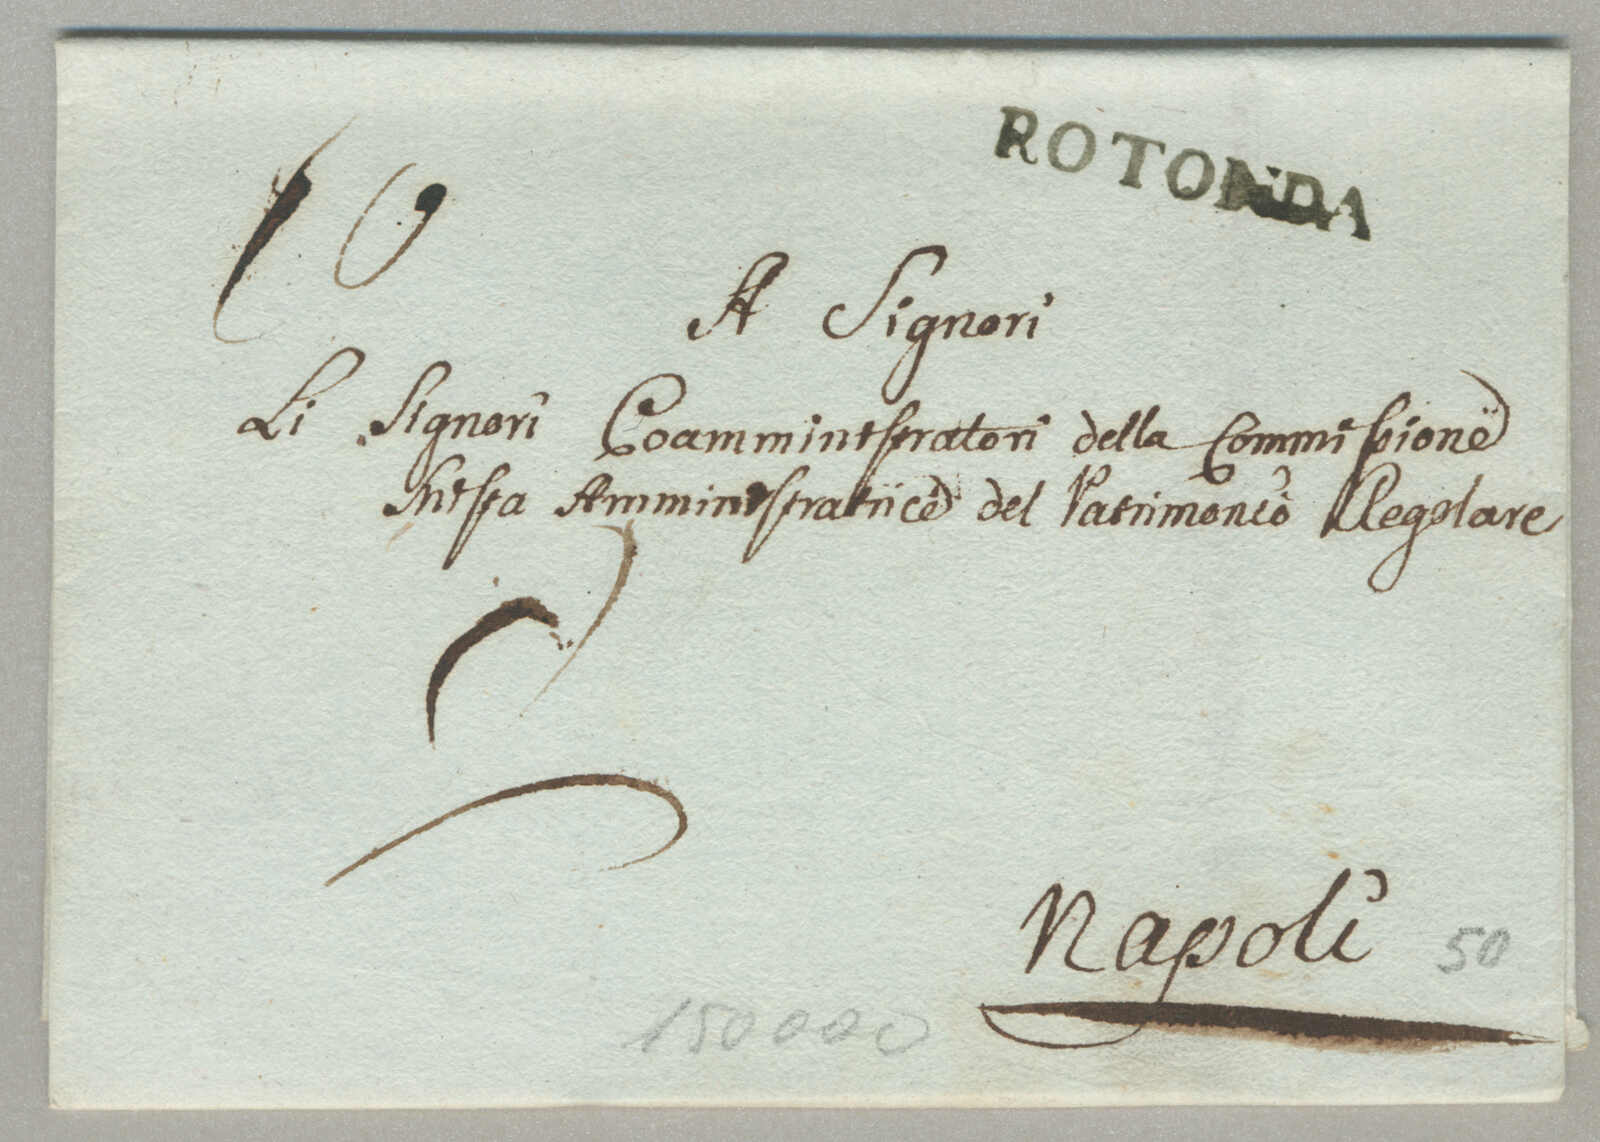 ROTONDA
A Signori
Li Signori Coamministratori della Commissione
Mista Amministratrice del Patrimonio Regolare
Napoli
50
150000